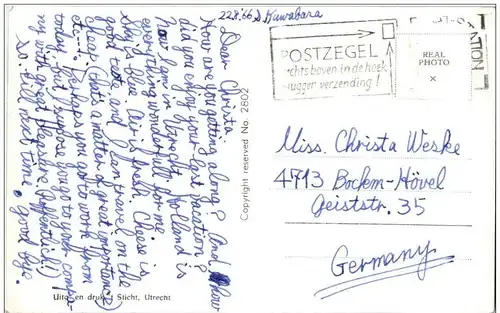 22.8.'66 S. Kuwabara
Dear Christa
How are you getting along? And how
did you enjoy your last vacation?
Now I am in Utrecht. Holland is
everything wonderful for me.
Sky is blue. Air is fresh. Cheese is
good taste, and I can travel on the
cheese! (that's a matter of great importance?)
etc.... Perhaps you go to work from
now, but I suppose you go to your company
with great pleasure.
So till next time, good bye.
Copyright reserved No. 2802
Uitg. en druk 't Sticht, Utrecht
POSTZEGEL
rechts boven in de hoek
vlugger verzending!
REAL
PHOTO
×
Miss. Christa Weske
4713 Bockem-Hövel
Geiststr. 35
Germany